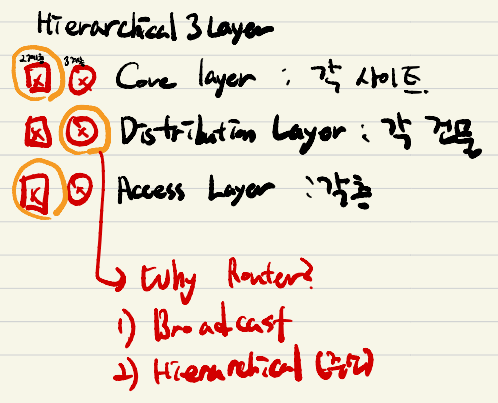 Hierarchical 3 Layer
2계층 3계층
Core layer : 각 사이트
Distribution Layer : 각 건물
Access Layer : 각층
Why Router?
1) Broadcast
2) Hierarchical (주소)